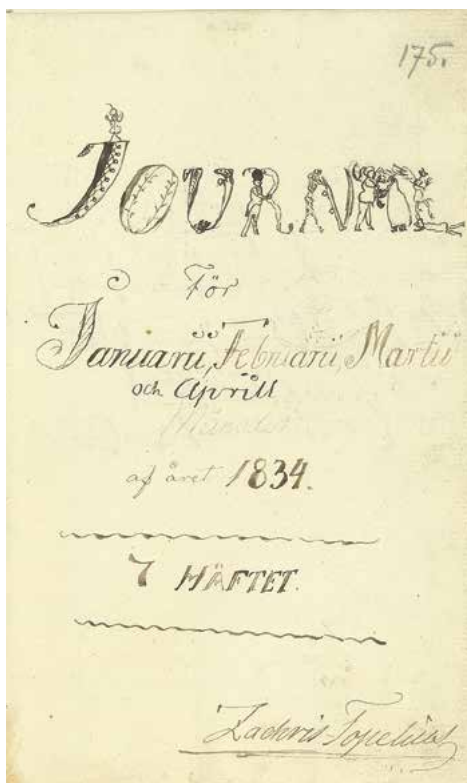 175.
JOURNAL
För
Januarii, Februarii, Martii
och Aprill
Månader
af året 1834.
7 HÄFTET.
Zachris Topelius